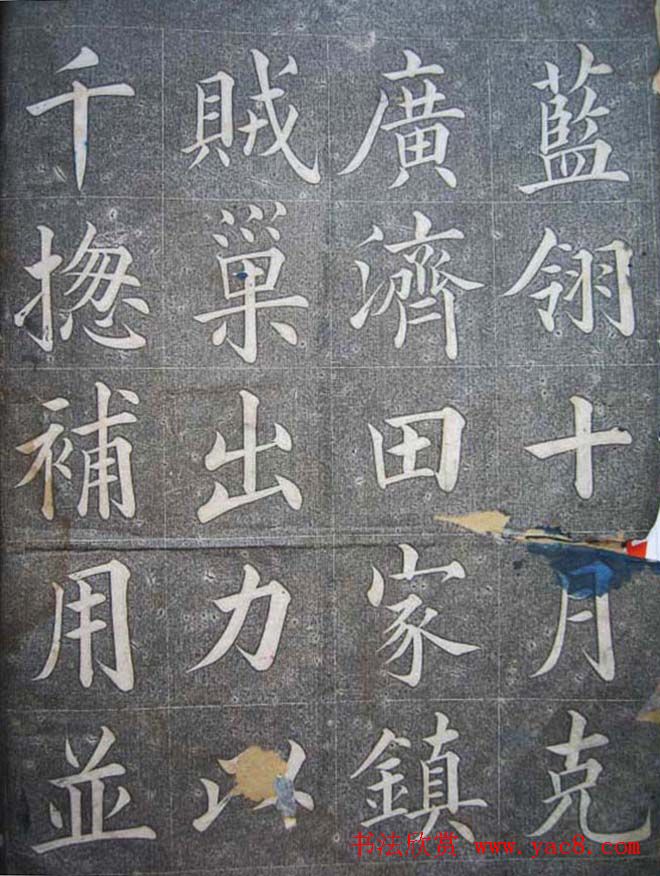 藍翎十月克
廣濟田家鎮
賊巢出力以
千揔補用並
书法欣赏 www.yac8.com